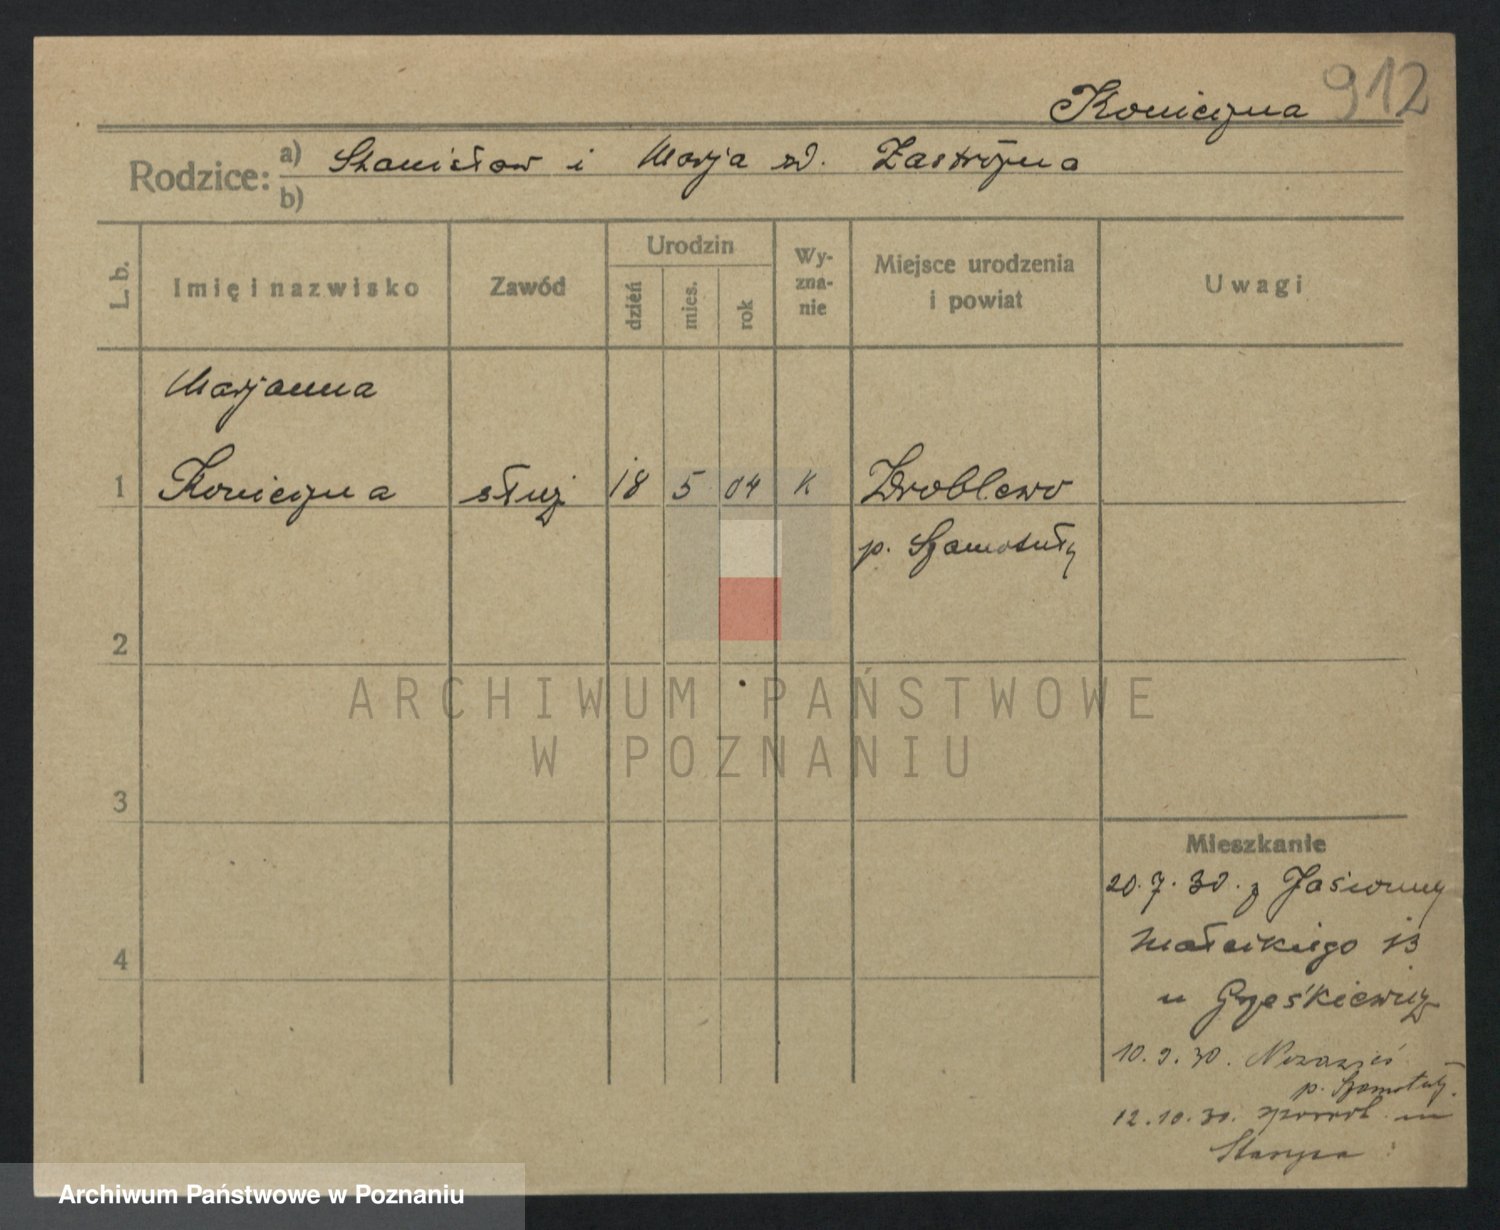 Konieczna 912
Rodzice: a) Stanisław i Marja zd. Zastróżna
b)
L. b.
Imię i nazwisko
Zawód
Urodzin
dzień
mies.
rok
Wy-
zna-
nie
Miejsce urodzenia
i powiat
Uwagi
Marjanna
1 Konieczna służ 18 5 04 K Wroblewo
p. Szamotuły
2
3
4
ARCHIWUM PAŃSTWOWE
W POZNANIU
Mieszkanie
20.7.30. z
Małeckiego 13
u Grześkiewicz
10.9.30.
p. Szamotuły
12.10.30.
Archiwum Państwowe w Poznaniu